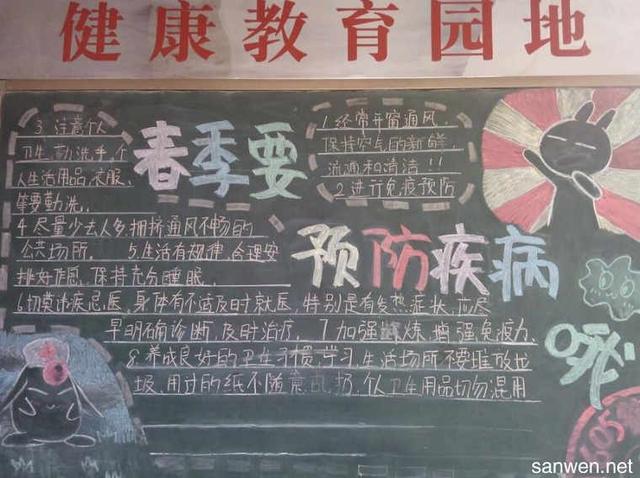 健康教育园地
春季要
预防疾病
1.经常开窗通风，
保持空气的新鲜
流通和清洁!!
2.进行免疫预防
3.注意个人
卫生,勤洗手,个
人生活用品,衣服、
等要勤洗.
4.尽量少去人多,拥挤通风不畅的
公共场所. 5.生活有规律,合理安
排好作息,保持充分睡眠.
6.切莫讳疾忌医,身体有不适及时就医,特别是有发热症状,应尽
早明确诊断,及时治疗. 7.加强锻炼,增强免疫力.
8.养成良好的卫生习惯,学习生活场所不要堆放垃
圾,用过的纸不随意乱扔,个人卫生用品切勿混用
sanwen.net